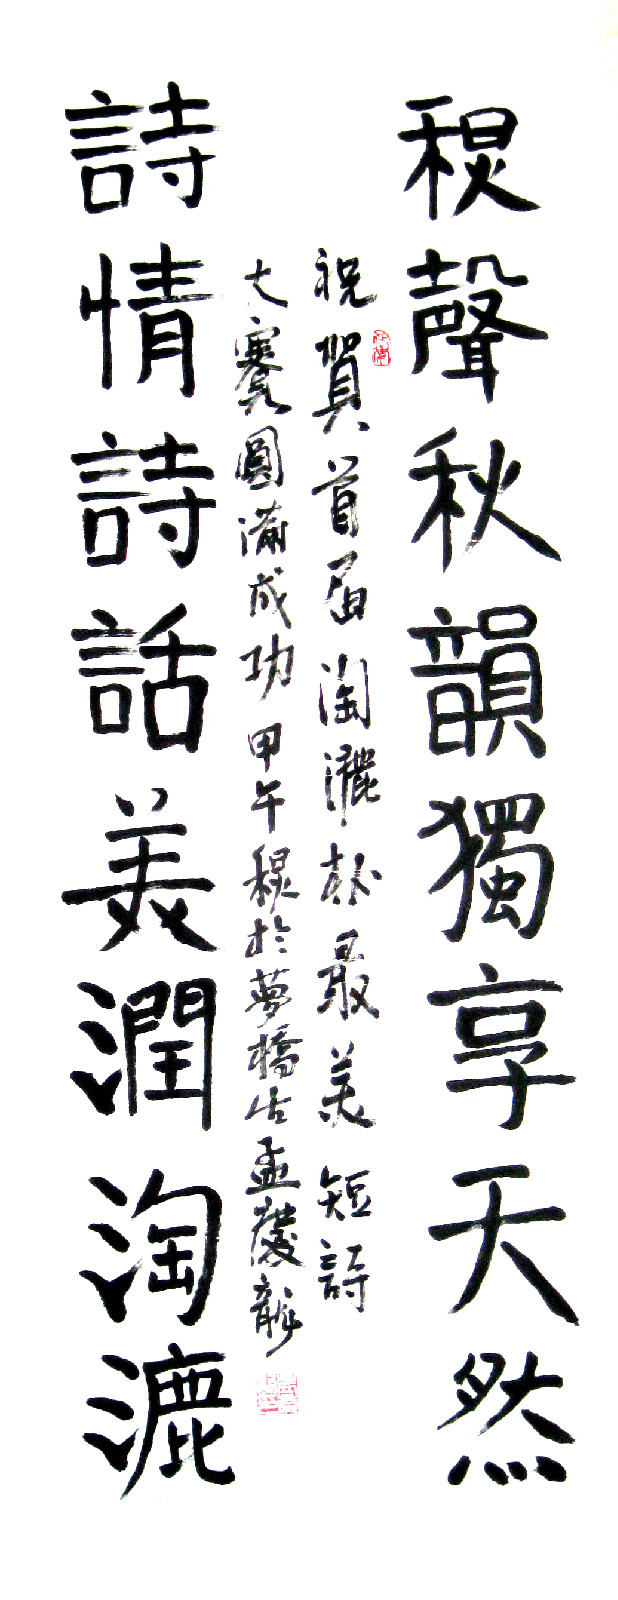 聲秋韻獨享天然
祝賀首屆淘漉杯最美短詩
大賽圓滿成功甲午於夢橋孟慶龍
詩情詩話美潤淘漉